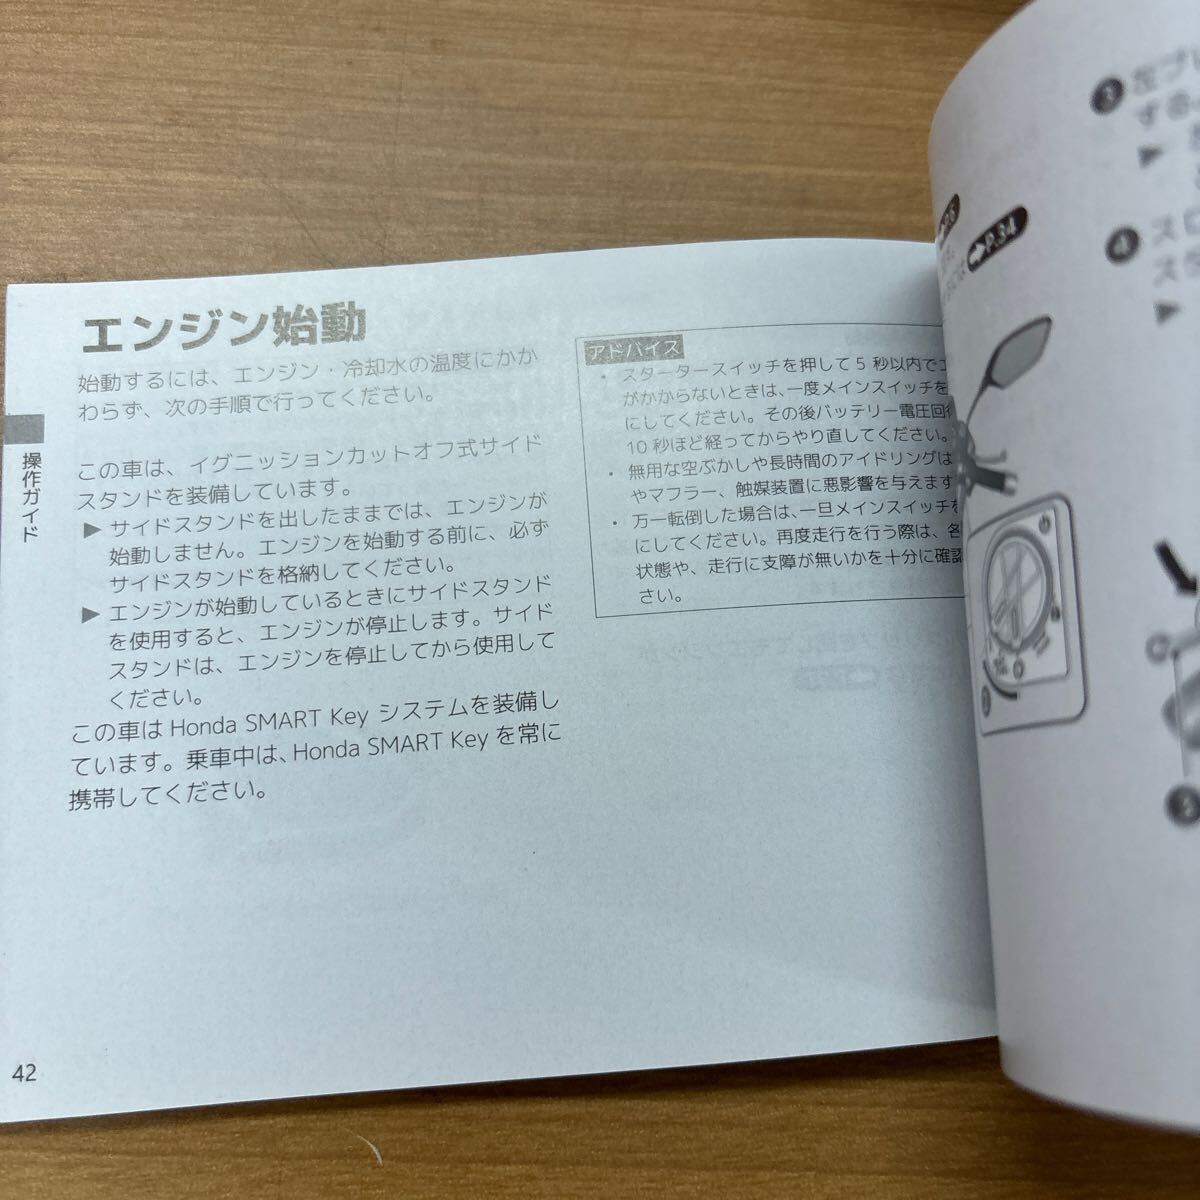 エンジン始動
始動するには、エンジン・冷却水の温度にかか
わらず、次の手順で行ってください。
この車は、イグニッションカットオフ式サイド
スタンドを装備しています。
▶ サイドスタンドを出したままでは、エンジンが
始動しません。エンジンを始動する前に、必ず
サイドスタンドを格納してください。
▶ エンジンが始動しているときにサイドスタンド
を使用すると、エンジンが停止します。サイド
スタンドは、エンジンを停止してから使用して
ください。
この車は Honda SMART Key システムを装備し
ています。乗車中は、Honda SMART Key を常に
携帯してください。
アドバイス
・ スタータースイッチを押して 5 秒以内で
がかからないときは、一度メインスイッチを
にしてください。その後バッテリー電圧回
10 秒ほど経ってからやり直してください。
・ 無用な空ぶかしや長時間のアイドリングは
やマフラー、触媒装置に悪影響を与えます
・ 万一転倒した場合は、一旦メインスイッチを
にしてください。再度走行を行う際は、各
状態や、走行に支障が無いかを十分に確認
さい。
操作ガイド
42
➡P.34
❸ 左ブ
する
▶
❹ スロ
▶